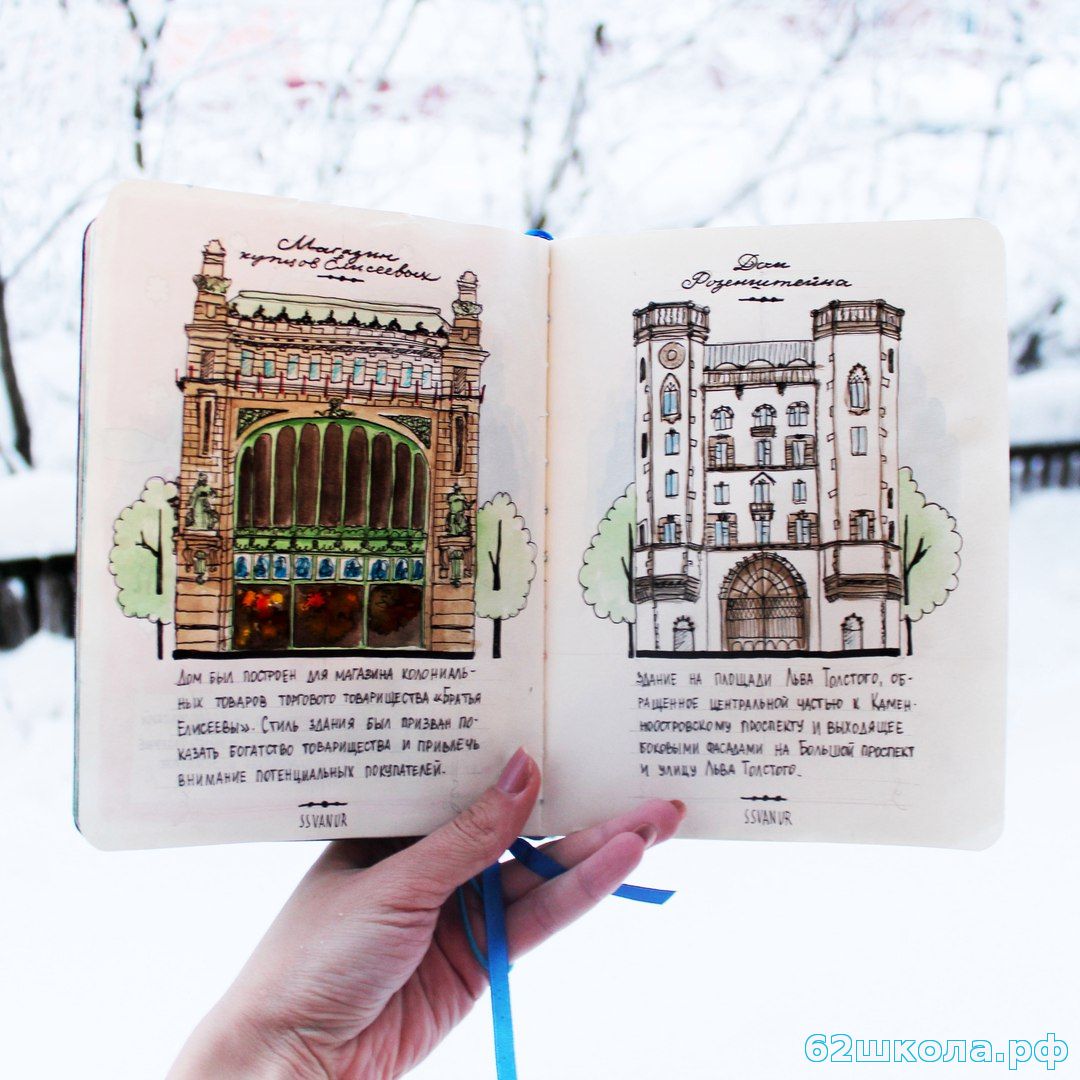 Магазин
купцов Елисеевых
Дом был построен для магазина колониаль-
ных товаров торгового товарищества «Братья
Елисеевы». Стиль здания был призван по-
казать богатство товарищества и привлечь
внимание потенциальных покупателей.
SSVANUR
Дом
Розенштейна
Здание на площади Льва Толстого, об-
ращенное центральной частью к Камен-
ноостровскому проспекту и выходящее
боковыми фасадами на Большой проспект
и улицу Льва Толстого.
SSVANUR
62школа.рф